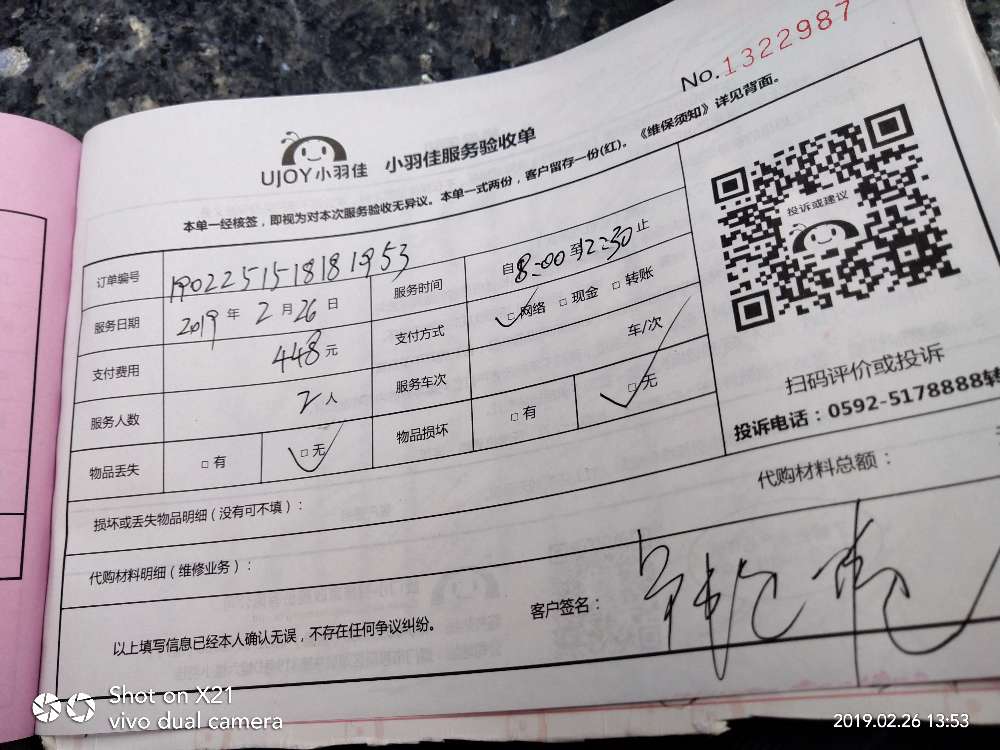 No.1322987
UJOY小羽佳 小羽佳服务验收单
本单一经核签，即视为对本次服务验收无异议。本单一式两份，客户留存一份(红)。《维保须知》详见背面。
订单编号 1902251518181953 服务时间 自8:00至12:30止
服务日期 2019年2月26日 支付方式 □网络 □现金 □转账
支付费用 448元 服务车次 车/次
服务人数 2人 物品损坏 □有 □无
物品丢失 □有 □无
投诉或建议
扫码评价或投诉
投诉电话：0592-5178888转
损坏或丢失物品明细（没有可不填）：
代购材料明细（维修业务）： 代购材料总额：
以上填写信息已经本人确认无误，不存在任何争议纠纷。 客户签名：
Shot on X21
vivo dual camera
2019.02.26 13:53